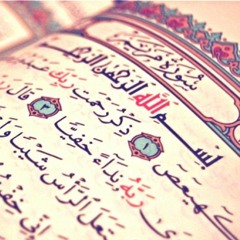 سُورَةُ مَرْيَمَ
بِسْمِ اللَّهِ الرَّحْمَٰنِ الرَّحِيمِ
كٓهيعٓصٓ ١ ذِكْرُ رَحْمَتِ رَبِّكَ
رَبَّهُ نِدَآءً خَفِيًّا ٣ قَالَ رَ
ٱلرَّأْسُ شَيْبًا وَلَ
خِفْتُ